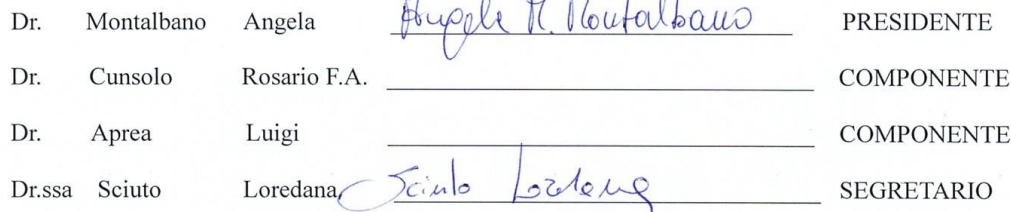 Dr. Montalbano Angela Angela M. Montalbano PRESIDENTE
Dr. Cunsolo Rosario F.A. COMPONENTE
Dr. Aprea Luigi COMPONENTE
Dr.ssa Sciuto Loredana Sciuto Loredana SEGRETARIO